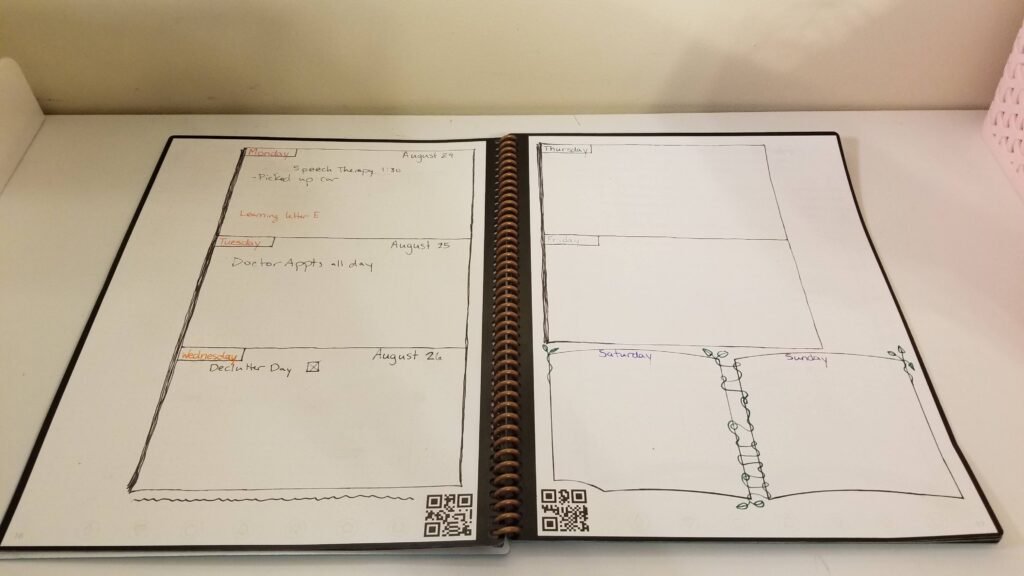 Monday August 24
Speech Therapy 1:30
- Picked up car
Learning letter E
Tuesday August 25
Doctor Appts all day
Wednesday August 26
Declutter Day
Thursday
Friday
Saturday
Sunday